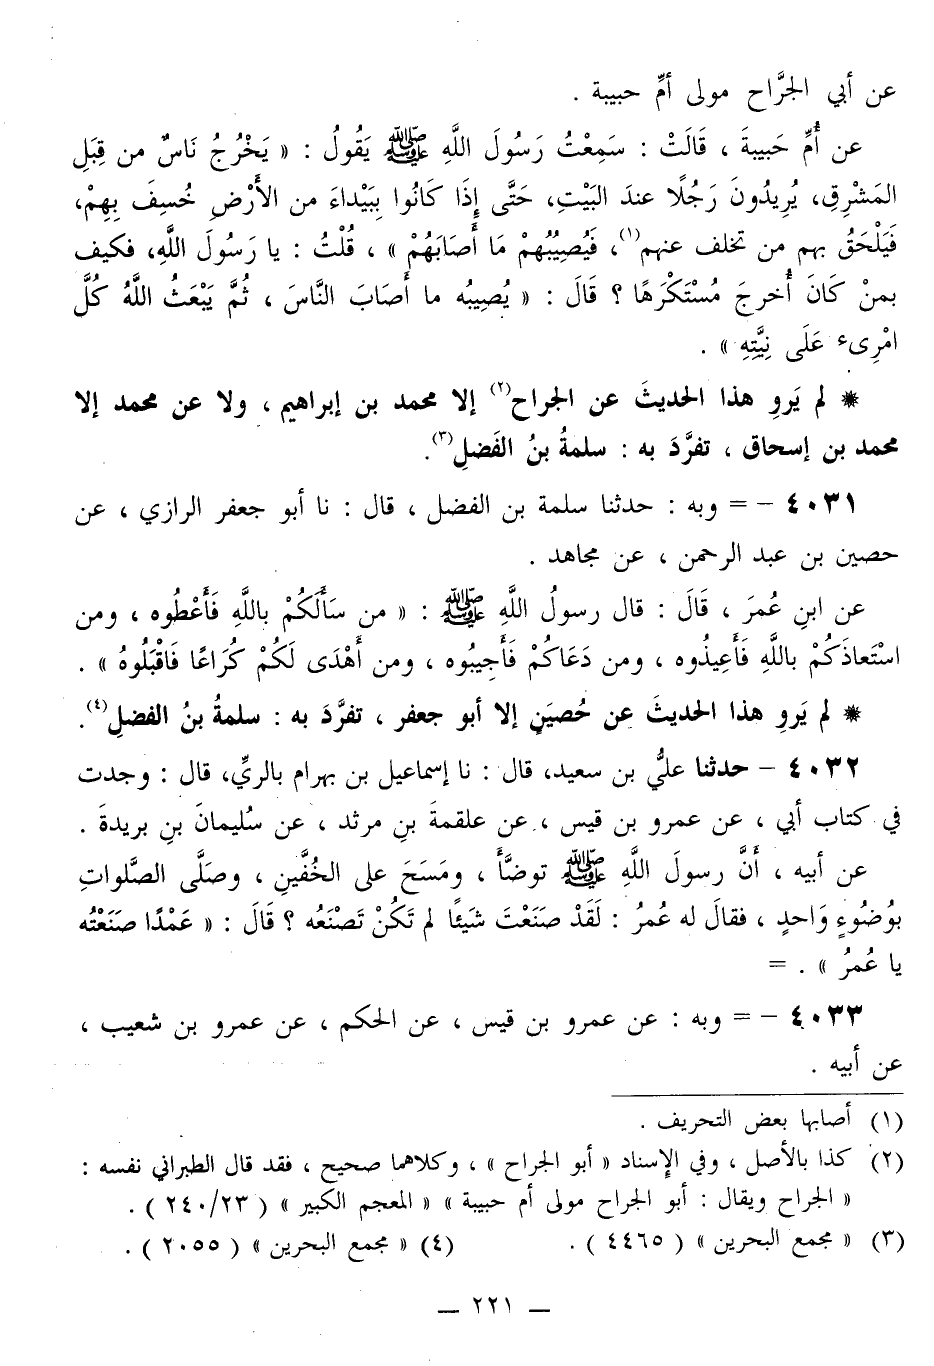 عن أبي الجَرَّاح مولى أمِّ حبيبة .
عن أُمِّ حَبيبةَ ، قَالَتْ : سَمِعْتُ رَسُولَ اللَّهِ ﷺ يَقُولُ : « يَخْرُجُ نَاسٌ من قِبَلِ
المَشْرِقِ، يُرِيدُونَ رَجُلًا عندَ البَيْتِ، حَتَّى إِذَا كَانُوا بِبَيْداءَ من الأَرْضِ خُسِفَ بِهِمْ،
فَيَلْحَقُ بهم من تخلف عنهم(١)، فَيُصِيبُهُمْ مَا أَصَابَهُمْ » ، قُلْتُ : يا رَسُولَ اللَّهِ، فكيف
بمنْ كَانَ أُخرجَ مُسْتَكْرَهًا ؟ قَالَ : « يُصِيبُه ما أصَابَ النَّاسَ ، ثُمَّ يَبْعَثُ اللَّهُ كُلَّ
امْرِىء عَلَى نِيَّتِهِ » .
* لم يَروِ هذا الحديثَ عن الجراح(٢) إلا محمد بن إبراهيم ، ولا عن محمد إلا
محمد بن إسحاق ، تفرَّدَ به : سلمةُ بنُ الفَضلِ(٣).
٤٠٣١ – = وبه : حدثنا سلمة بن الفضل ، قال : نا أبو جعفر الرازي ، عن
حصين بن عبد الرحمن ، عن مجاهد .
عن ابنِ عُمرَ ، قَالَ : قال رسولُ اللَّهِ ﷺ : « من سَأَلَكُمْ باللَّهِ فَأَعْطُوه ، ومن
اسْتَعاذَكُمْ باللَّهِ فَأَعِيذُوه ، ومن دَعَاكُمْ فَأَجِيبُوه ، ومن أَهْدَى لَكُمْ كُرَاعًا فَاقْبَلُوهُ » .
* لم يَروِ هذا الحديثَ عن حُصيَنٍ إلا أبو جعفر ، تفرَّدَ به : سلمةُ بنُ الفضلِ(٤).
٤٠٣٢ – حدثنا عليُّ بن سعيد، قال : نا إسماعيل بن بهرام بالريِّ، قال : وجدت
في كتاب أبي ، عن عمرو بن قيس ، عن علقمةَ بنِ مرثد ، عن سُليمانَ بنِ بريدةَ .
عن أبيه ، أَنَّ رسولَ اللَّهِ ﷺ توضَّأَ ، ومَسَحَ على الخُفَّينِ ، وصلَّى الصَّلواتِ
بوُضُوءٍ وَاحدٍ ، فقالَ له عُمرُ : لَقَدْ صَنَعْتَ شَيئًا لم تَكُنْ تَصْنَعُه ؟ قَالَ : « عَمْدًا صَنَعْتُه
يا عُمرُ » . =
٤٠٣٣ – = وبه : عن عمرو بن قيس ، عن الحكم ، عن عمرو بن شعيب ،
عن أبيه .
(١) أصابها بعض التحريف .
(٢) كذا بالأصل ، وفي الإسناد « أبو الجراح » ، وكلاهما صحيح ، فقد قال الطبراني نفسه :
« الجراح ويقال : أبو الجراح مولى أم حبيبة » « المعجم الكبير » ( ٢٤٠/٢٣ ) .
(٣) « مجمع البحرين » ( ٤٤٦٥ ) . (٤) « مجمع البحرين » ( ٢٠٥٥ ) .
— ٢٢١ —